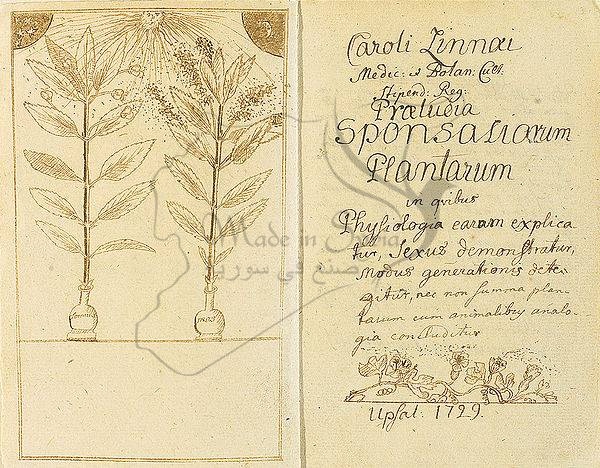 femina
mas
Caroli Linnæi
Medic: et Botan: Cult.
Stipend: Reg:
Præludia
Sponsaliorum
Plantarum
in qvibus
Physiologia earum explica
tur, Sexus demonstratur,
Modus generationis dete-
gitur, nec non summa plan-
tarum cum animalibus analo-
gia concluditur
Upsal. 1729.
Made in Syria
صنع في سوريا